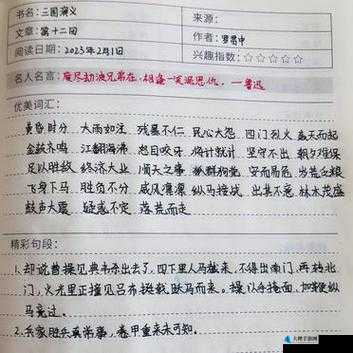 书名：三国演义
来源：
文章：第十二回
作者：罗贯中
阅读日期：2023年2月1日
兴趣指数：☆☆☆☆☆
名人名言：度尽劫波兄弟在，相逢一笑泯恩仇。——鲁迅
优美词汇：
黄昏时分 大雨如注 残暴不仁 民心大怨 四门烈火 轰天而起
金鼓齐鸣 江翻海沸 怒目咬牙 将计就计 坚守不出 朝夕难保
足以胜敌 终济大业 顺天之事 狐群狗党 安而易危
飞身下马 胜负不分 威风凛凛 纵马接战 出其不意 林木茂盛
鼓声大震 疑惑不定 落荒而走
精彩句段：
1.却说曹操见典韦杀出去了，四下里人马截来，不得出南门，再转北
门，火光里正撞见吕布挺戟跃马而来。操以手掩面，加鞭纵马
竟过。
2.兵家胜负真常事，卷甲重来未可知。